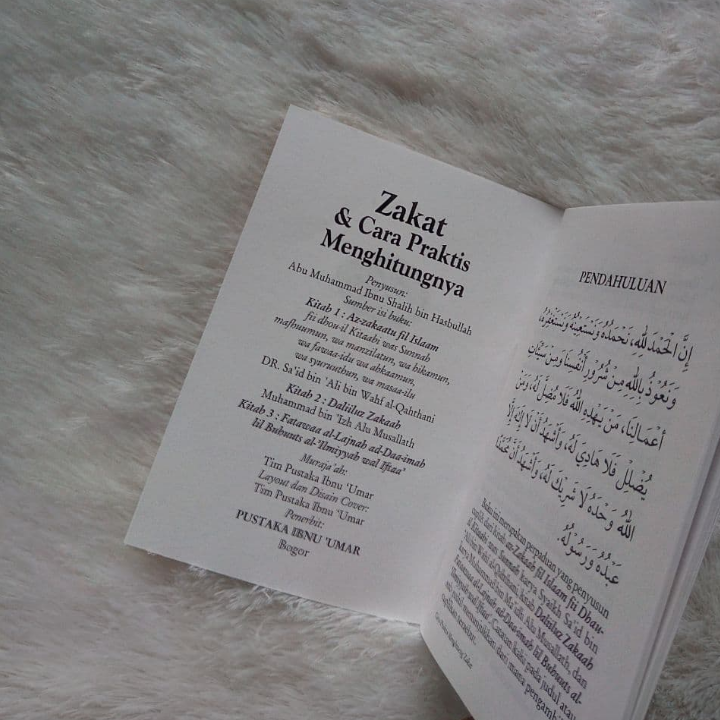 Zakat
& Cara Praktis
Menghitungnya
Penyusun:
Abu Muhammad Ibnu Shalih bin Hasbullah
Sumber isi buku:
Kitab 1 : Az-zakaatu fil Islaam
fii dhou-il Kitaabi was Sunnah
mafhuumun, wa manzilatun, wa hikamun,
wa fawaa-idu wa ahkaamun,
wa syuruuthun, wa masaa-ilu
DR. Sa'id bin 'Ali bin Wahf al-Qahthani
Kitab 2 : Daliiluz Zakaah
Muhammad bin 'Izh Alu Musallath
Kitab 3 : Fatawaa al-Lajnah ad-Daa-imah
lil Buhuuts al-'Ilmiyyah wal Iftaa'
Muraja'ah:
Tim Pustaka Ibnu 'Umar
Layout dan Disain Cover:
Tim Pustaka Ibnu 'Umar
Penerbit:
PUSTAKA IBNU 'UMAR
Bogor
PENDAHULUAN
إِنَّ الْحَمْدَ لِلَّهِ، نَحْمَدُهُ وَنَسْتَعِينُهُ وَنَسْتَغْفِرُهُ
وَنَعُوْذُ بِاللهِ مِنْ شُرُوْرِ أَنْفُسِنَا وَمِنْ سَيِّئَاتِ
أَعْمَالِنَا، مَنْ يَهْدِهِ اللهُ فَلَا مُضِلَّ لَهُ، وَمَنْ
يُضْلِلْ فَلَا هَادِيَ لَهُ، وَأَشْهَدُ أَنْ لَا إِلَهَ إِلَّا
اللهُ وَحْدَهُ لَا شَرِيْكَ لَهُ، وَأَشْهَدُ أَنَّ مُحَمَّدًا
عَبْدُهُ وَرَسُوْلُهُ.
Buku ini merupakan perpaduan yang penyusun
nukil dari kitab az-Zakaah fil Islaam fii Dhau-
il Kitaabi was Sunnah karya Syaikh Sa'id bin
'Ali bin Wahf al-Qahthani, kitab Daliiluz Zakaah
karya Muhammad bin 'Izh Alu Musallath, dan
Fatawaa al-Lajnah ad-Daa-imah lil Buhuuts al-
'Ilmiyyah wal Iftaa'. Catatan kaki pada judul atau